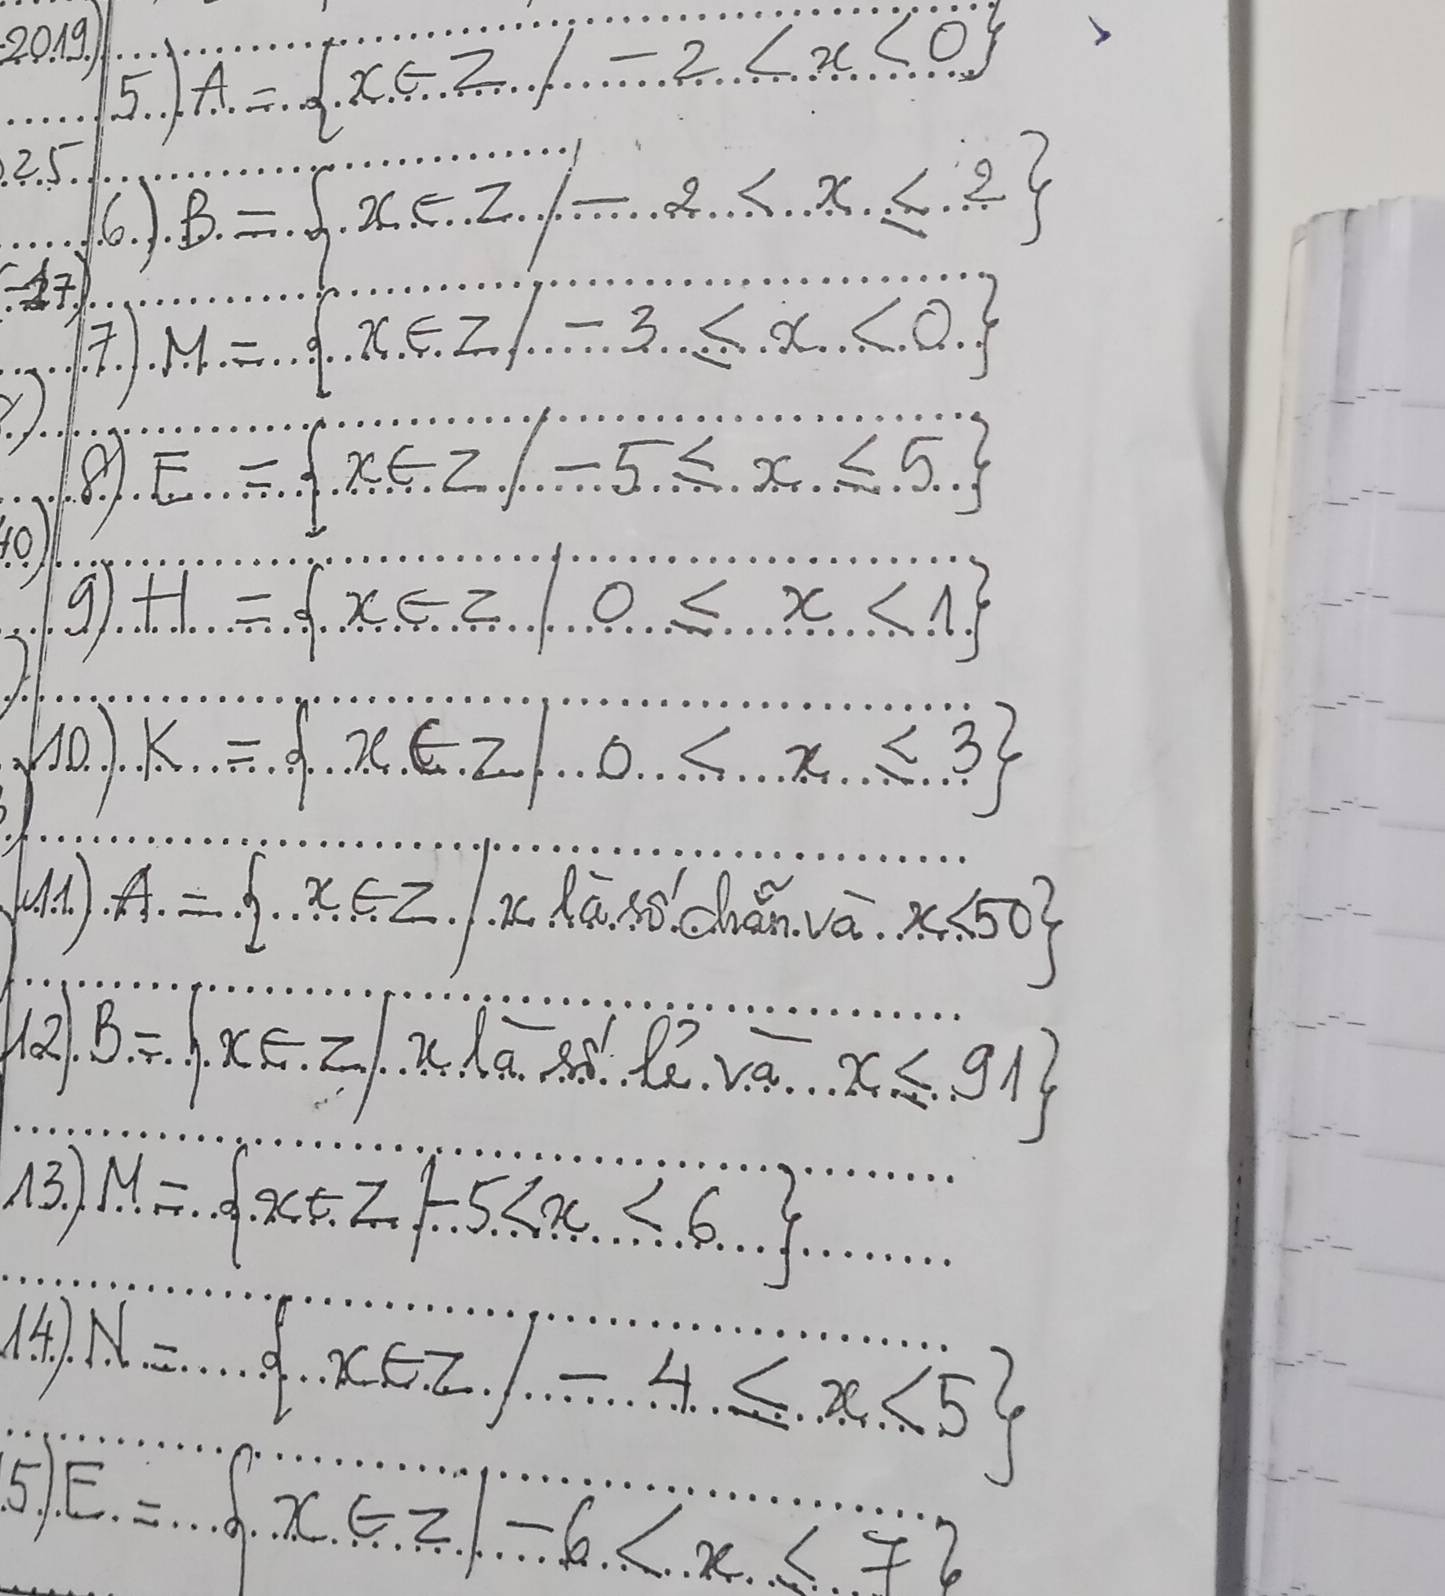 2019)
5) A = { x ∈ Z / - 2 < x < 0}
25
6) B = { x ∈ Z / - 2 < x ≤ 2 }
7) M = { x ∈ Z / - 3 ≤ x < 0 }
8) E = { x ∈ Z / - 5 ≤ x ≤ 5 }
9) H = { x ∈ Z / 0 ≤ x < 1 }
10) K = { x ∈ Z / 0 < x ≤ 3 }
11) A = { x ∈ Z / x là số chẵn và x < 50 }
12) B = { x ∈ Z / x là số lẻ và x ≤ 91 }
13) M = { x ∈ Z / - 5 < x < 6 }
14) N = { x ∈ Z / - 4 ≤ x < 5 }
5) E = { x ∈ Z / - 6 < x ≤ 7 }